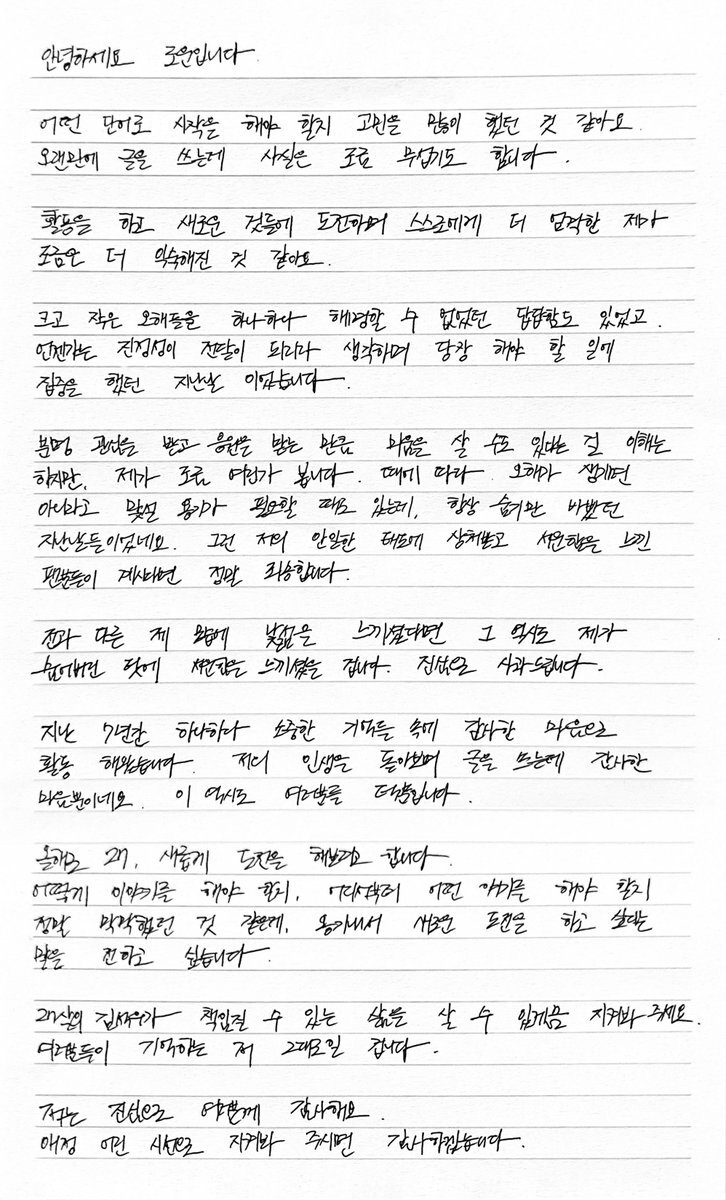 안녕하세요 로운입니다.
어떤 단어로 시작을 해야 할지 고민을 많이 했던 것 같아요.
오랜만에 글을 쓰는데 사실은 조금 무섭기도 합니다.
활동을 하고 새로운 것들에 도전하며 스스로에게 더 엄격한 제가
조금은 더 익숙해진 것 같아요.
크고 작은 오해들을 하나하나 해명할 수 없었던 답답함도 있었고.
언젠가는 진정성이 전달이 되리라 생각하며 당장 해야 할 일에
집중을 했던 지난날 이었습니다.
분명 관심을 받고 응원을 받는 만큼 미움을 살 수도 있다는 걸 이해는
하지만, 제가 조금 여린가 봅니다. 때에 따라 오해가 생기면
아니라고 맞설 용기가 필요할 때도 있는데, 항상 숨기만 바빴던
지난날들이었네요. 그런 저의 안일한 태도에 상처받고 서운함을 느낀
팬분들이 계시다면 정말 죄송합니다.
전과 다른 제 모습에 낯섦을 느끼셨다면 그 역시도 제가
숨어버린 탓에 서운함을 느끼셨을 겁니다. 진심으로 사과드립니다.
지난 7년간 하나하나 소중한 기억들 속에 감사한 마음으로
활동 해왔습니다. 저의 인생을 돌아보며 글을 쓰는데 감사한
마음뿐이네요. 이 역시도 여러분들 덕분입니다.
올해로 27, 새롭게 도전을 해보려고 합니다.
어떻게 이야기를 해야 할지, 어디서부터 어떤 얘기를 해야 할지
정말 막막했던 것 같은데, 용기내서 새로운 도전을 하고 싶다는
말을 전하고 싶습니다.
27살의 김석우가 책임질 수 있는 삶을 살 수 있게끔 지켜봐 주세요.
여러분들이 기억하는 저 그대로일 겁니다.
저는 진심으로 여러분께 감사해요.
애정 어린 시선으로 지켜봐 주시면 감사하겠습니다.